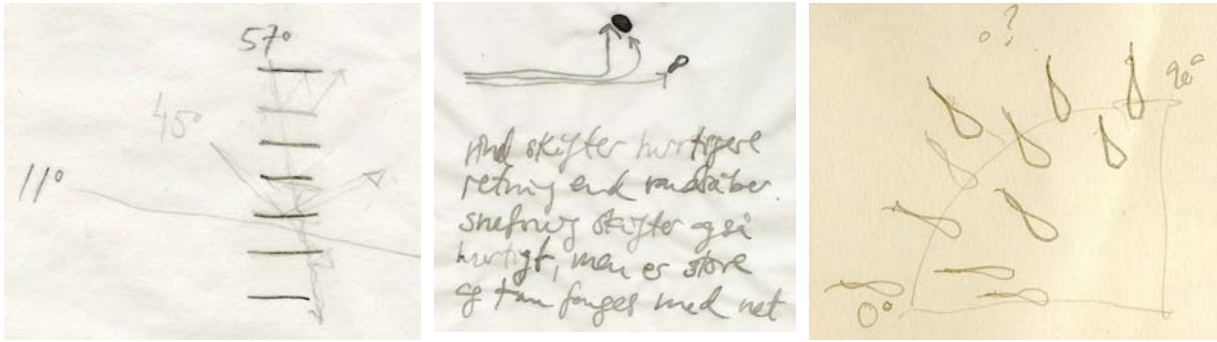 57°
45°
11°
vind skifter hurtigere
retning end vanddråber.
snefnug skifter også
hurtigt, men er store
og kan fanges med net
0?
90°
0°